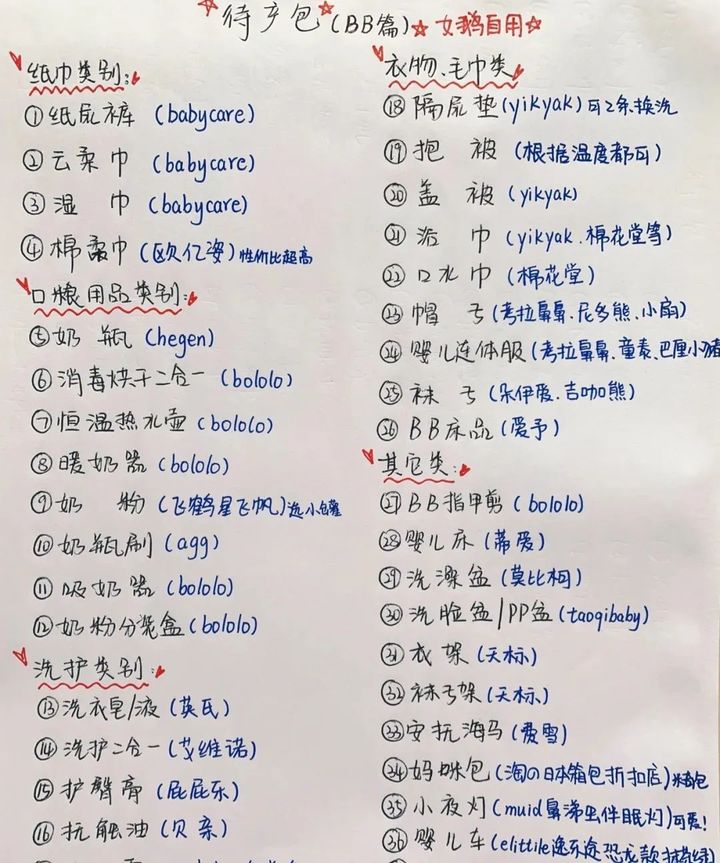 待产包(BB篇) 女鹅自用
纸巾类别:
①纸尿裤 (babycare)
②云柔巾 (babycare)
③湿 巾 (babycare)
④棉柔巾 (欧亿姿)性价比超高
口粮用品类别:
⑤奶 瓶 (hegen)
⑥消毒烘干二合一 (bololo)
⑦恒温热水壶 (bololo)
⑧暖奶器 (bololo)
⑨奶 粉 (飞鹤星飞帆)选小白罐
⑩奶瓶刷 (agg)
⑪吸奶器 (bololo)
⑫奶粉分装盒 (bololo)
洗护类别:
⑬洗衣皂/液 (英氏)
⑭洗护二合一 (艾维诺)
⑮护臀膏 (屁屁乐)
⑯抚触油 (贝亲)
衣物、毛巾类
⑱隔尿垫 (yikyak) 可2条换洗
⑲抱 被 (根据温度都可)
⑳盖 被 (yikyak)
㉑浴 巾 (yikyak.棉花堂等)
㉒口水巾 (棉花堂)
㉓帽 子 (考拉鼻鼻.尼多熊.小扇)
㉔婴儿连体服 (考拉鼻鼻.童泰.巴厘小猪
㉕袜 子 (朵伊爱.吉咖熊)
㉖BB床品 (爱予)
其它类:
㉗BB指甲剪 (bololo)
㉘婴儿床 (蒂爱)
㉙洗澡盆 (莫比柯)
㉚洗脸盆/PP盆 (taoqibaby)
㉛衣架 (天标)
㉜袜子架 (天标)
㉝安抚海马 (费雪)
㉞妈咪包 (淘の日本箱包折扣店)
㉟小夜灯 (muid鼻涕虫伴眠灯)可爱!
㊱婴儿车 (elittile逸乐途恐龙款